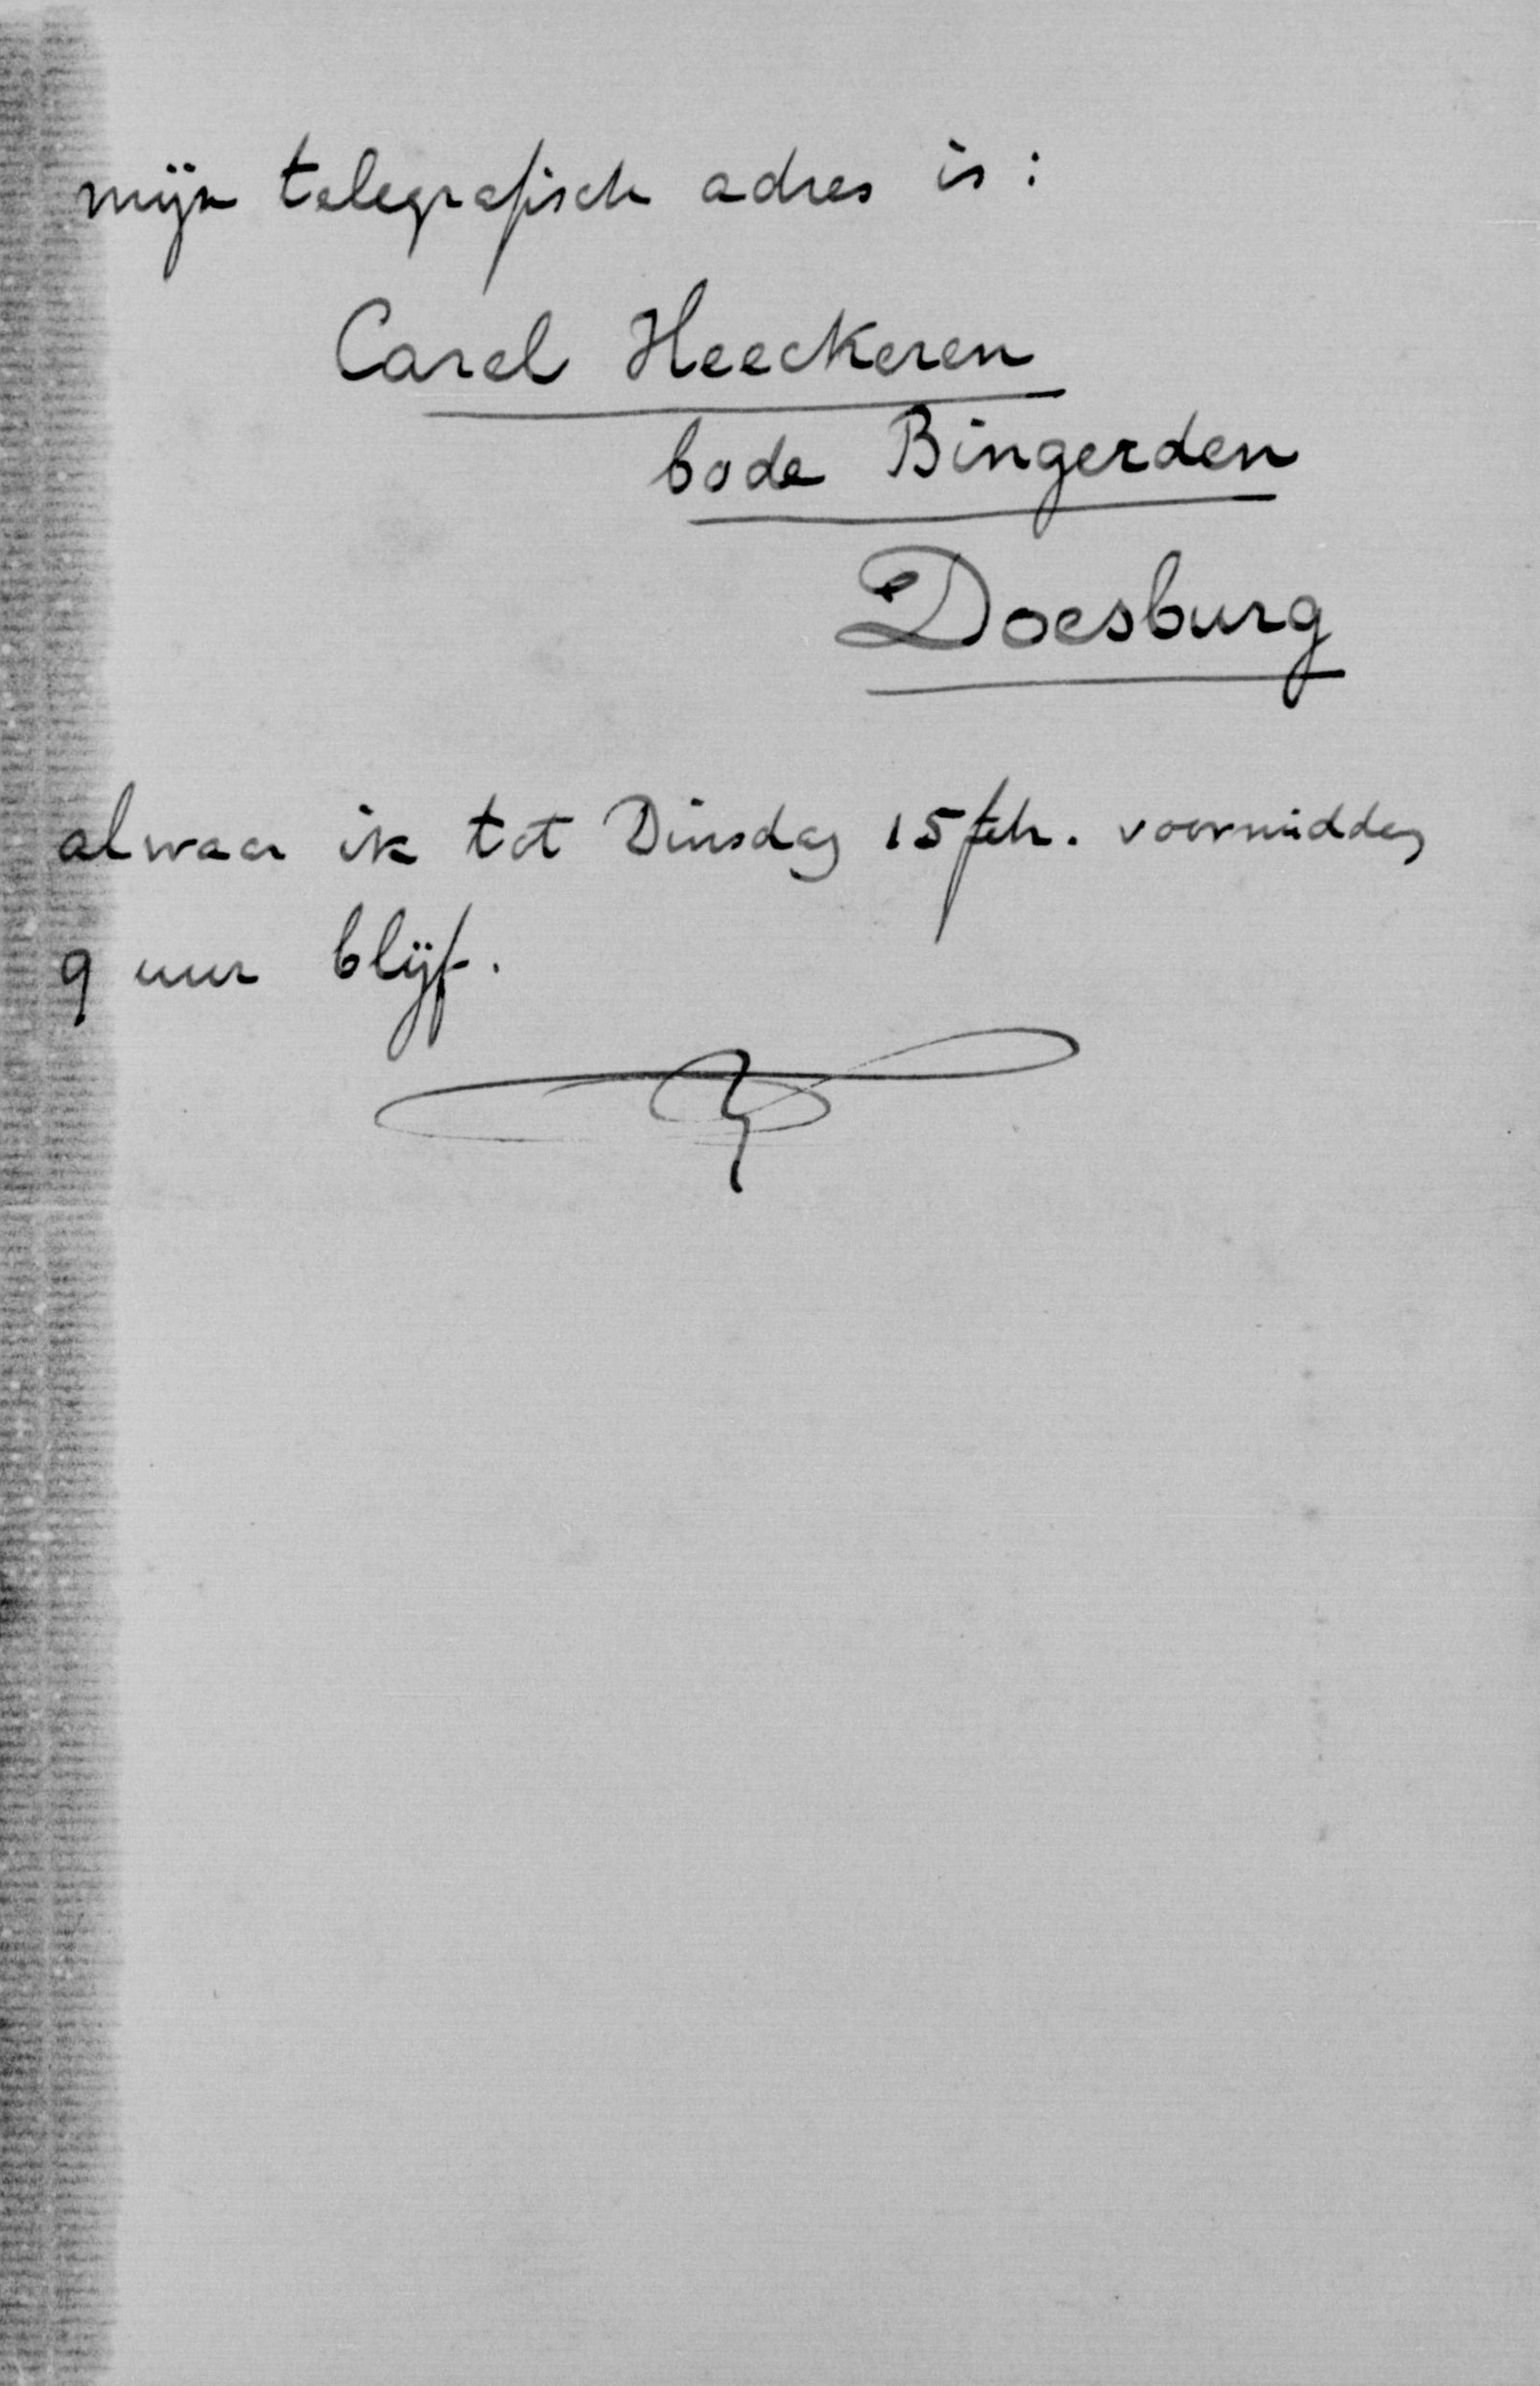 mijn telegrafisch adres is:
Carel Heeckeren
bode Bingerden
Doesburg
alwaar ik tot Dinsdag 15 feb. voormiddag
9 uur blijf.